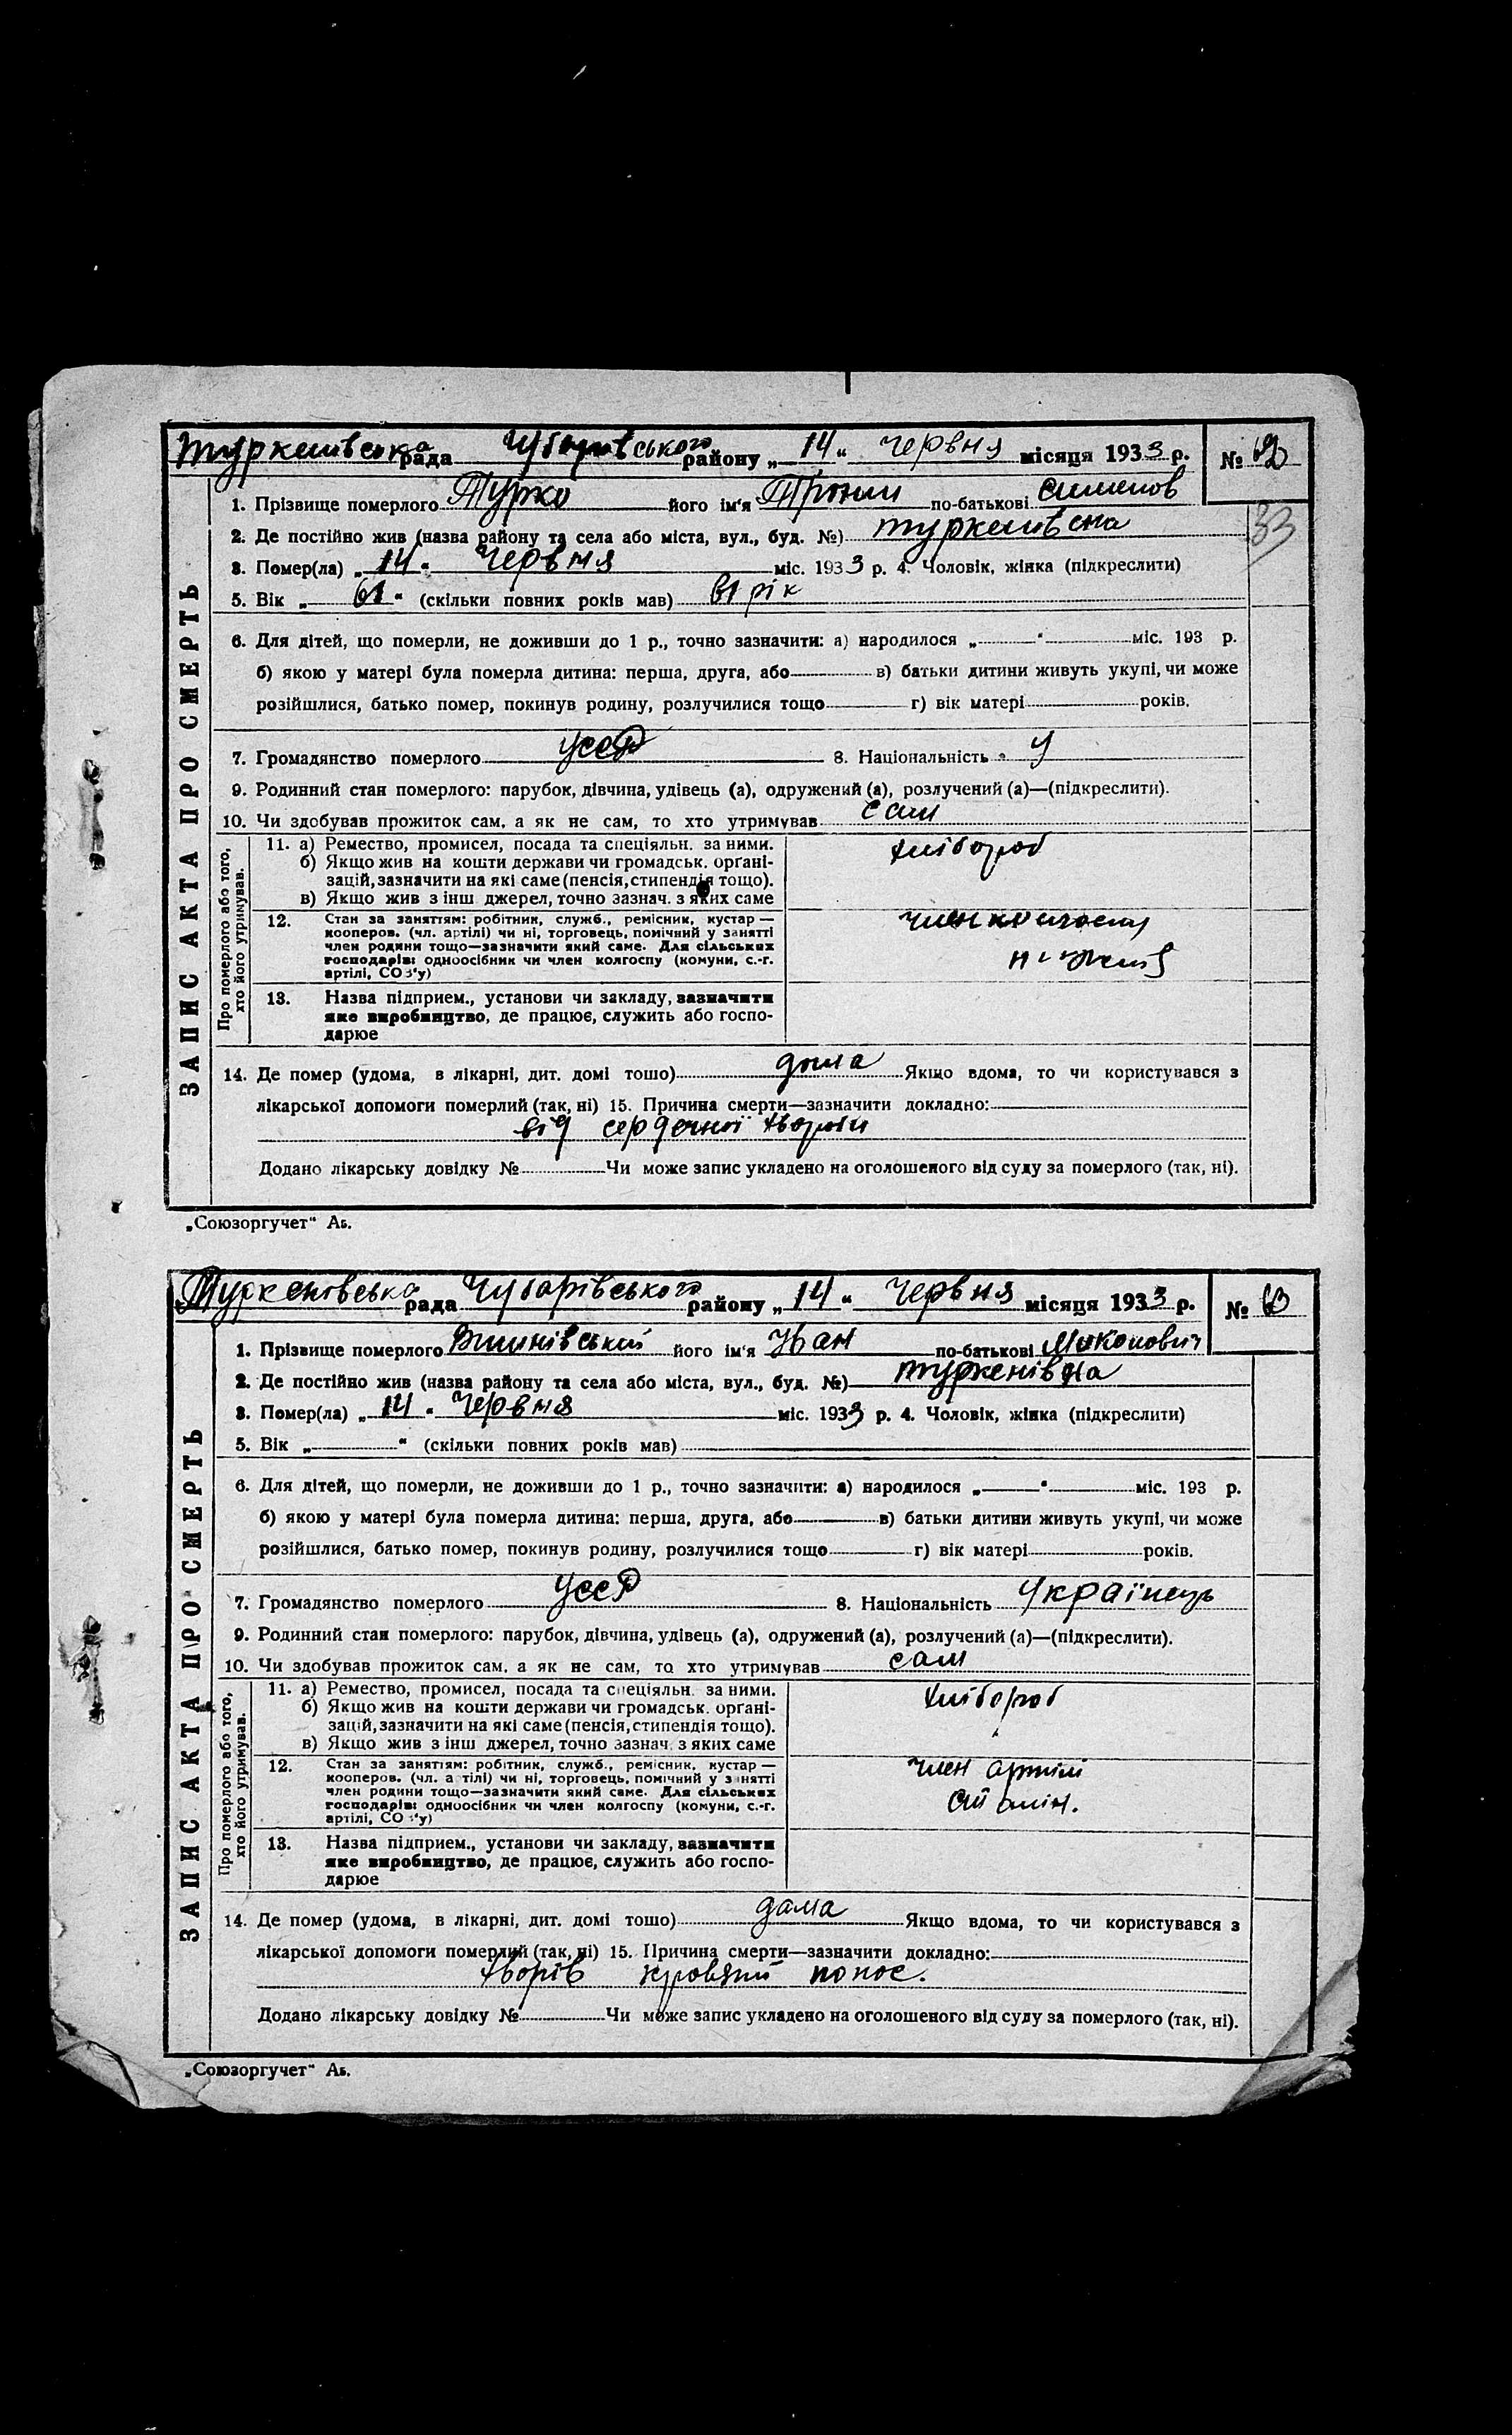 Туркенівська рада Чубарівського району „14“ Червня місяця 1933 р. № 62
33
ЗАПИС АКТА ПРО СМЕРТЬ
1. Прізвище померлого Турко його ім'я по-батькові
2. Де постійно жив (назва району та села або міста, вул., буд. №)
3. Помер(ла) „14“ Червня міс. 1933 р. 4. Чоловік, жінка (підкреслити)
5. Вік „61“ (скільки повних років мав) 61 рік
6. Для дітей, що померли, не доживши до 1 р., точно зазначити: а) народилося „ “ міс. 193 р.
б) якою у матері була померла дитина: перша, друга, або в) батьки дитини живуть укупі, чи може
розійшлися, батько помер, покинув родину, розлучилися тощо г) вік матері років.
7. Громадянство померлого УССР 8. Національність У
9. Родинний стан померлого: парубок, дівчина, удівець (а), одружений (а), розлучений (а)—(підкреслити).
10. Чи здобував прожиток сам, а як не сам, то хто утримував сам
Про померлого або того, хто його утримував.
11. а) Ремество, промисел, посада та спеціяльн. за ними.
б) Якщо жив на кошти держави чи громадськ. органі-
зацій, зазначити на які саме (пенсія, стипендія тощо).
в) Якщо жив з інш джерел, точно зазнач. з яких саме
хлібороб
12. Стан за заняттям: робітник, служб., ремісник, кустар —
кооперов. (чл. артілі) чи ні, торговець, помічний у занятті
член родини тощо—зазначити який саме. Для сільських
господарів: одноосібник чи член колгоспу (комуни, с.-г.
артілі, СОЗ'у)
член
13. Назва підприєм., установи чи закладу, зазначити
яке виробництво, де працює, служить або госпо-
дарює
14. Де помер (удома, в лікарні, дит. домі тощо) дома Якщо вдома, то чи користувався з
лікарської допомоги померлий (так, ні) 15. Причина смерти—зазначити докладно:
від сердечної хвороби
Додано лікарську довідку № Чи може запис укладено на оголошеного від суду за померлого (так, ні).
„Союзоргучет“ Аь.
Туркенівська рада Чубарівського району „14“ Червня місяця 1933 р. № 63
ЗАПИС АКТА ПРО СМЕРТЬ
1. Прізвище померлого Вишнівський його ім'я Іван по-батькові
2. Де постійно жив (назва району та села або міста, вул., буд. №) Туркенівка
3. Помер(ла) „14“ Червня міс. 1933 р. 4. Чоловік, жінка (підкреслити)
5. Вік „ “ (скільки повних років мав)
6. Для дітей, що померли, не доживши до 1 р., точно зазначити: а) народилося „ “ міс. 193 р.
б) якою у матері була померла дитина: перша, друга, або в) батьки дитини живуть укупі, чи може
розійшлися, батько помер, покинув родину, розлучилися тощо г) вік матері років.
7. Громадянство померлого УССР 8. Національність Українець
9. Родинний стан померлого: парубок, дівчина, удівець (а), одружений (а), розлучений (а)—(підкреслити).
10. Чи здобував прожиток сам, а як не сам, то хто утримував сам
Про померлого або того, хто його утримував.
11. а) Ремество, промисел, посада та спеціяльн. за ними.
б) Якщо жив на кошти держави чи громадськ. органі-
зацій, зазначити на які саме (пенсія, стипендія тощо).
в) Якщо жив з інш джерел, точно зазнач. з яких саме
хлібороб
12. Стан за заняттям: робітник, служб., ремісник, кустар —
кооперов. (чл. артілі) чи ні, торговець, помічний у занятті
член родини тощо—зазначити який саме. Для сільських
господарів: одноосібник чи член колгоспу (комуни, с.-г.
артілі, СОЗ'у)
член артілі
Сталін.
13. Назва підприєм., установи чи закладу, зазначити
яке виробництво, де працює, служить або госпо-
дарює
14. Де помер (удома, в лікарні, дит. домі тощо) дома Якщо вдома, то чи користувався з
лікарської допомоги померлий (так, ні) 15. Причина смерти—зазначити докладно:
хворів кровяний понос.
Додано лікарську довідку № Чи може запис укладено на оголошеного від суду за померлого (так, ні).
„Союзоргучет“ Аь.